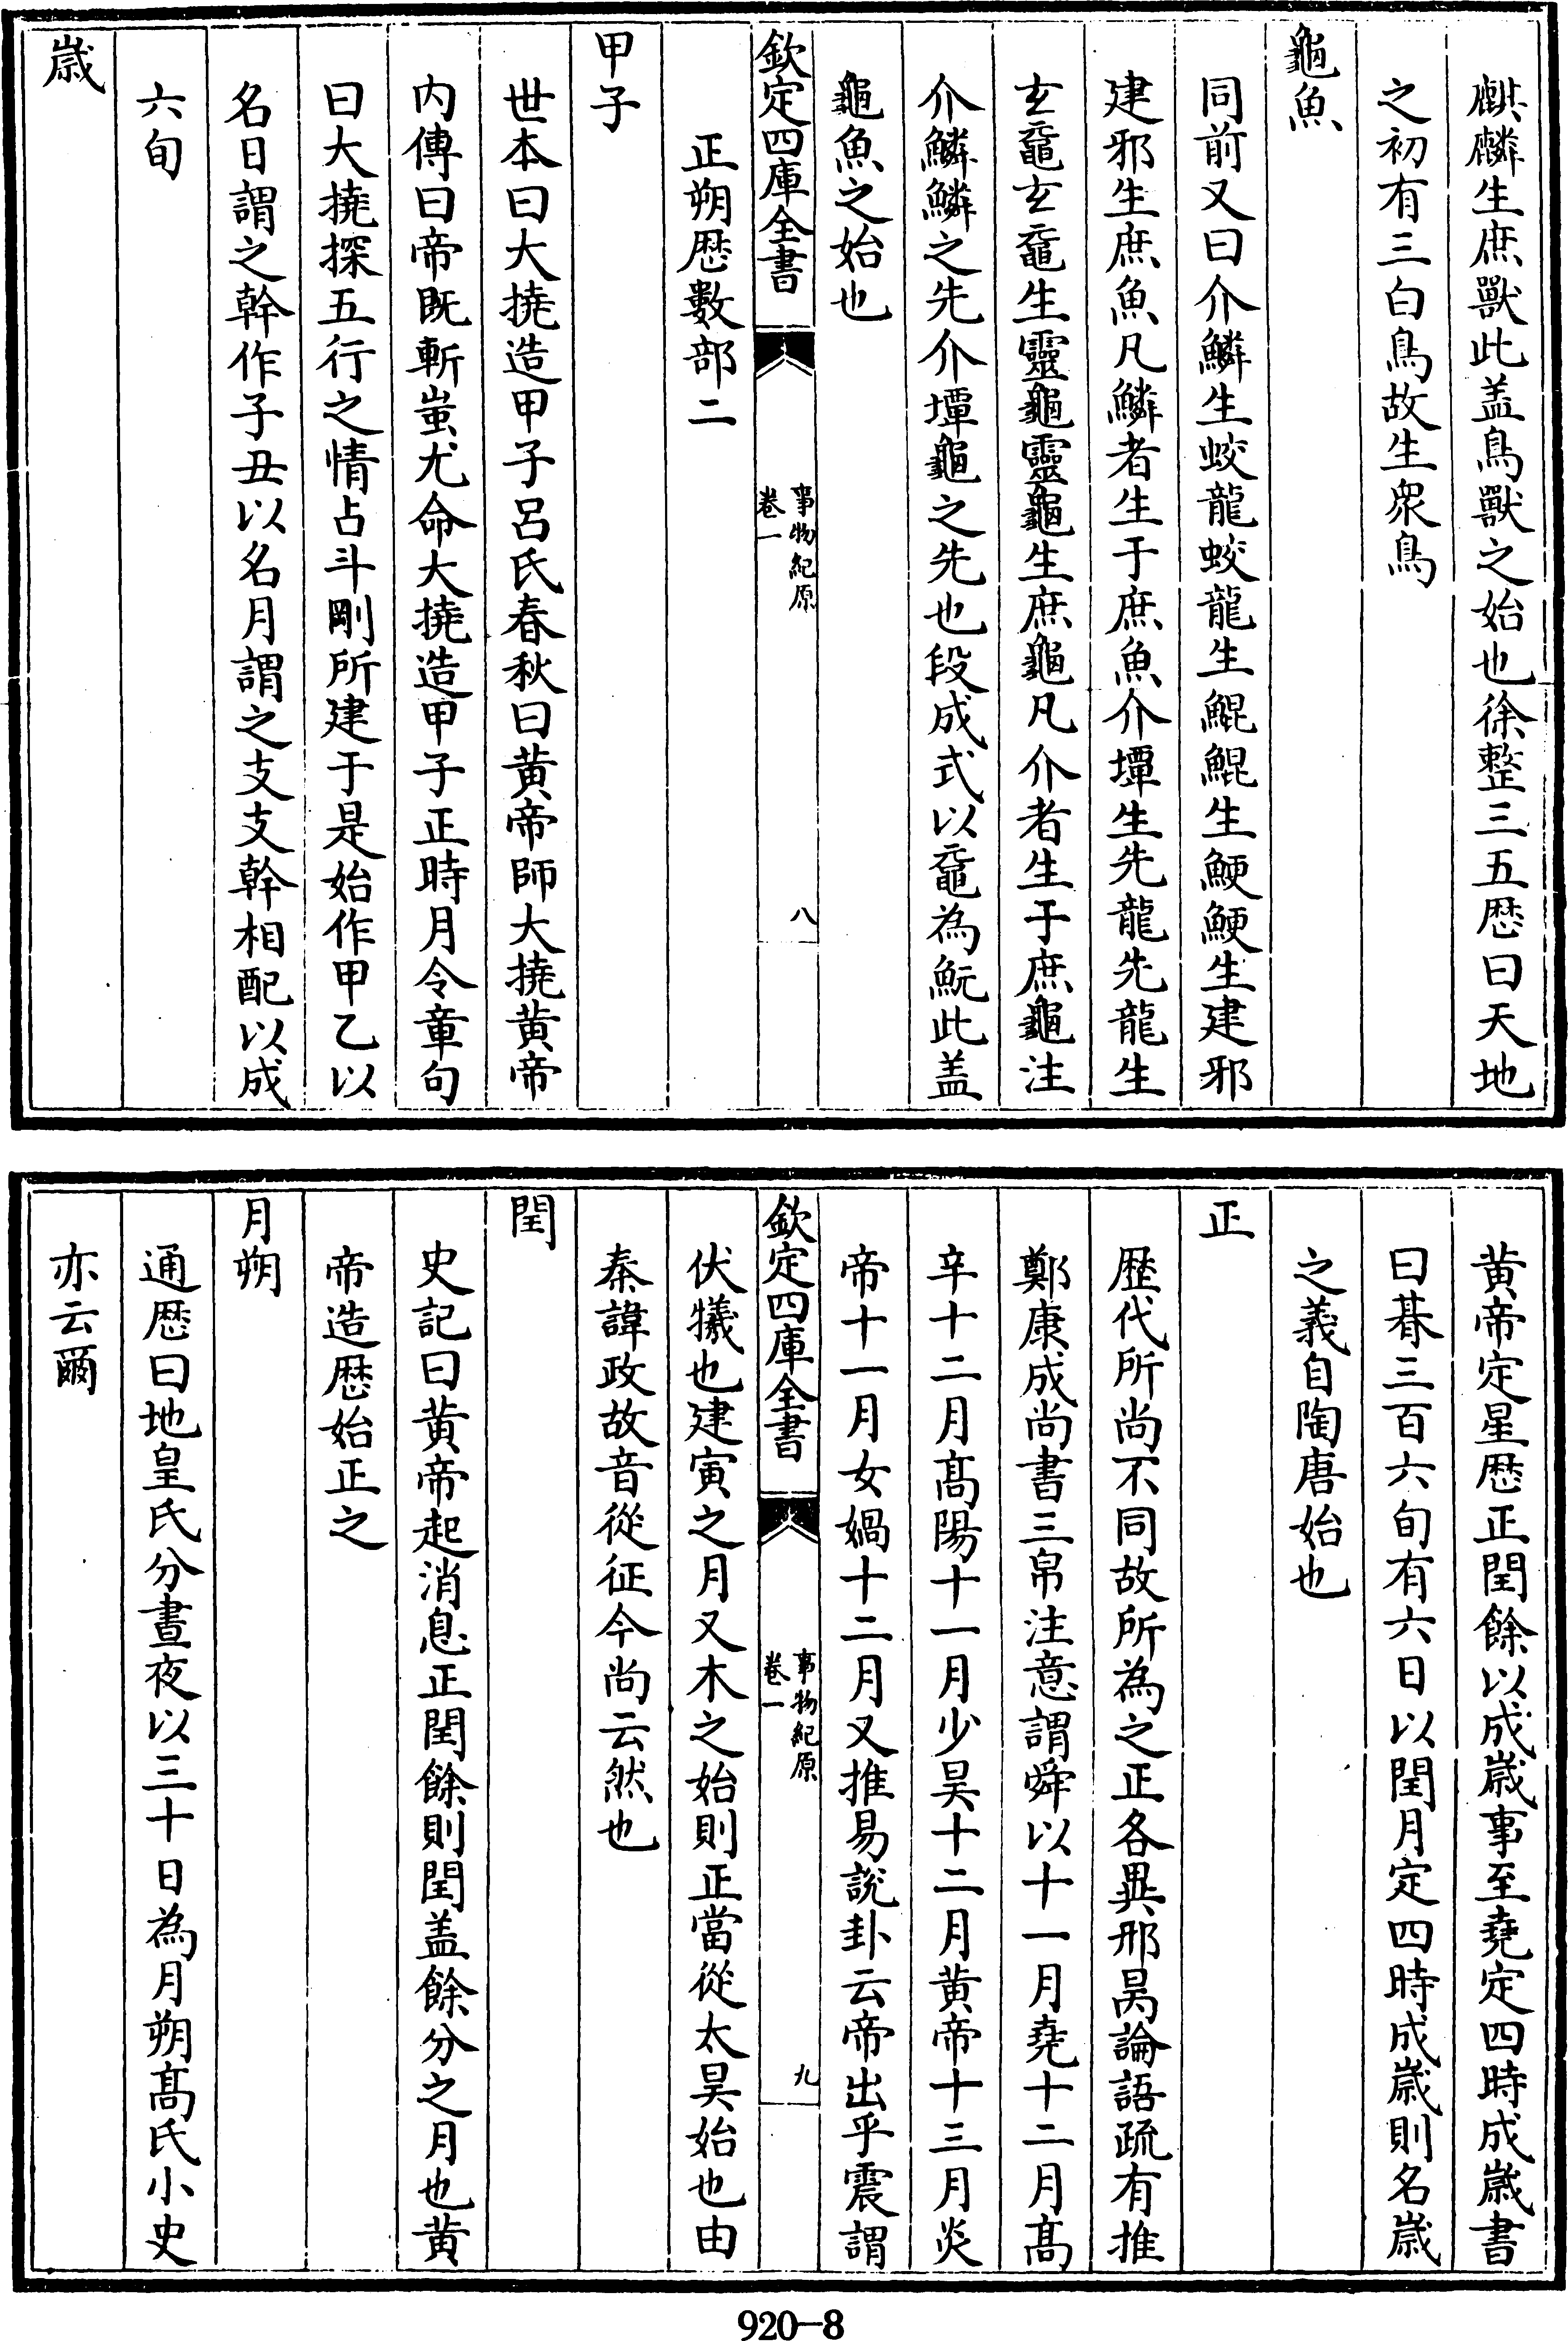 麒麟生庶獸此盖鳥獸之始也徐整三五厯曰天地
之初有三白鳥故生衆鳥
龜魚
同前又曰介鱗生蛟龍蛟龍生鯤鯤生鯁鯁生建邪
建邪生庶魚凡鱗者生于庶魚介墰生先龍先龍生
玄黿玄黿生靈龜靈龜生庶龜凡介者生于庶龜注
介鱗鱗之先介墰龜之先也段成式以黿為魭此盖
龜魚之始也
欽定四庫全書
事物紀原
卷一
八
正朔厯數部二
甲子
世本曰大撓造甲子呂氏春秋曰黄帝師大撓黄帝
内傳曰帝既斬蚩尤命大撓造甲子正時月令章句
曰大撓探五行之情占斗剛所建于是始作甲乙以
名日謂之幹作子丑以名月謂之支支幹相配以成
六旬
歳
黄帝定星厯正閏餘以成歳事至堯定四時成歳書
曰朞三百六旬有六日以閏月定四時成歳則名歳
之義自陶唐始也
正
歴代所尚不同故所為之正各異邢昺論語疏有推
鄭康成尚書三帛注意謂舜以十一月堯十二月髙
辛十二月髙陽十一月少昊十二月黄帝十三月炎
帝十一月女媧十二月又推易説卦云帝出乎震謂
欽定四庫全書
事物紀原
卷一
九
伏犧也建寅之月又木之始則正當從太昊始也由
秦諱政故音從征今尚云然也
閏
史記曰黄帝起消息正閏餘則閏盖餘分之月也黄
帝造厯始正之
月朔
通厯曰地皇氏分晝夜以三十日為月朔髙氏小史
亦云爾
920-8